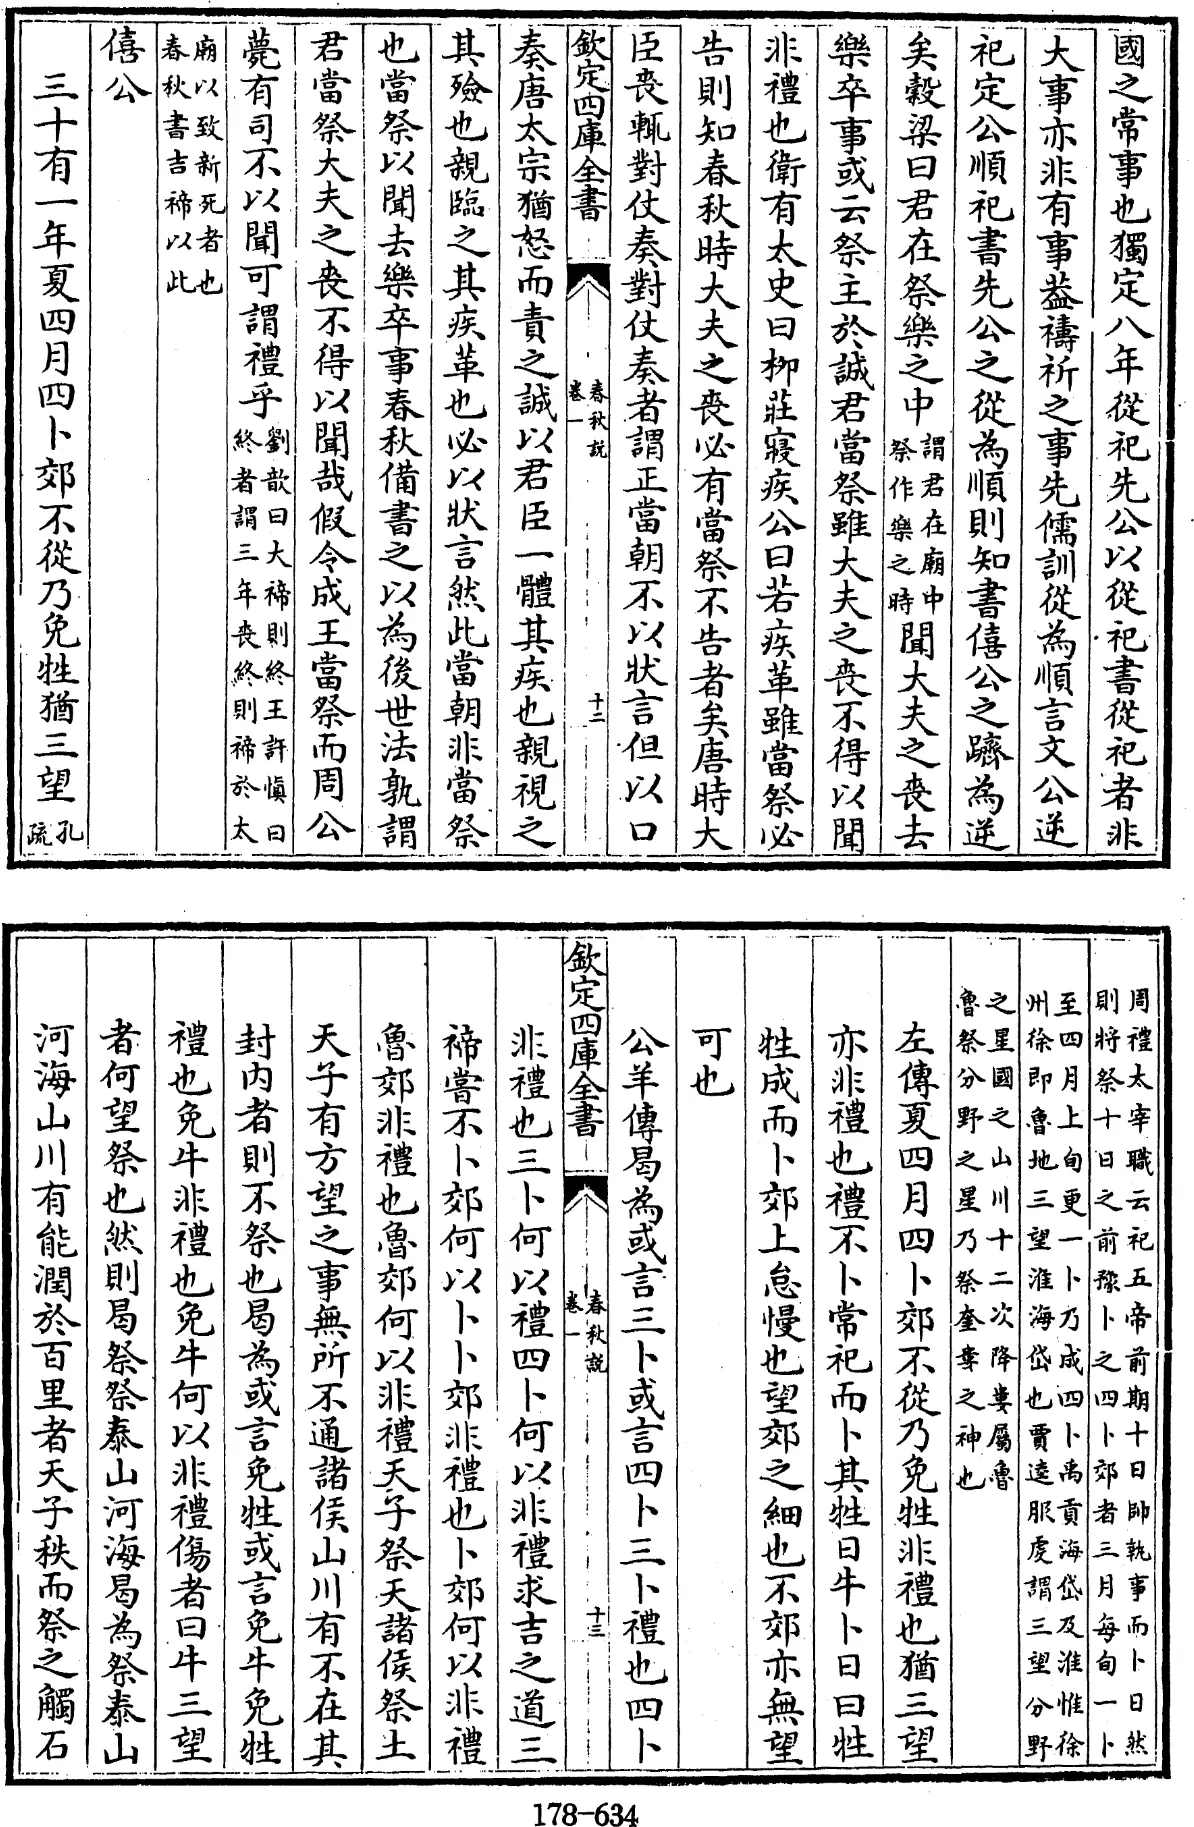 國之常事也獨定八年從祀先公以從祀書從祀者非
大事亦非有事葢禱祈之事先儒訓從為順言文公逆
祀定公順祀書先公之從為順則知書僖公之躋為逆
矣穀梁曰君在祭樂之中謂君在廟中祭作樂之時聞大夫之喪去
樂卒事或云祭主於誠君當祭雖大夫之喪不得以聞
非禮也衛有太史曰柳莊寢疾公曰若疾革雖當祭必
告則知春秋時大夫之喪必有當祭不告者矣唐時大
臣喪輒對仗奏對仗奏者謂正當朝不以狀言但以口
欽定四庫全書
春秋說
卷一
十二
奏唐太宗猶怒而責之誠以君臣一體其疾也親視之
其殮也親臨之其疾革也必以狀言然此當朝非當祭
也當祭以聞去樂卒事春秋備書之以為後世法孰謂
君當祭大夫之喪不得以聞哉假令成王當祭而周公
薨有司不以聞可謂禮乎劉歆曰大禘則終王許慎曰終者謂三年喪終則禘於太
廟以致新死者也
春秋書吉禘以此
僖公
三十有一年夏四月四卜郊不從乃免牲猶三望孔疏
周禮太宰職云祀五帝前期十日帥執事而卜日然
則將祭十日之前豫卜之四卜郊者三月每旬一卜
至四月上旬更一卜乃成四卜禹貢海岱及淮惟徐
州徐即魯地三望淮海岱也賈逵服虔謂三望分野
之星國之山川十二次降婁屬魯
魯祭分野之星乃祭奎婁之神也
左傳夏四月四卜郊不從乃免牲非禮也猶三望
亦非禮也禮不卜常祀而卜其牲日牛卜日曰牲
牲成而卜郊上怠慢也望郊之細也不郊亦無望
可也
公羊傳曷為或言三卜或言四卜三卜禮也四卜
欽定四庫全書
春秋說
卷一
十三
非禮也三卜何以禮四卜何以非禮求吉之道三
禘嘗不卜郊何以卜卜郊非禮也卜郊何以非禮
魯郊非禮也魯郊何以非禮天子祭天諸侯祭土
天子有方望之事無所不通諸侯山川有不在其
封内者則不祭也曷為或言免牲或言免牛免牲
禮也免牛非禮也免牛何以非禮傷者曰牛三望
者何望祭也然則曷祭祭泰山河海曷為祭泰山
河海山川有能潤於百里者天子秩而祭之觸石
178-634